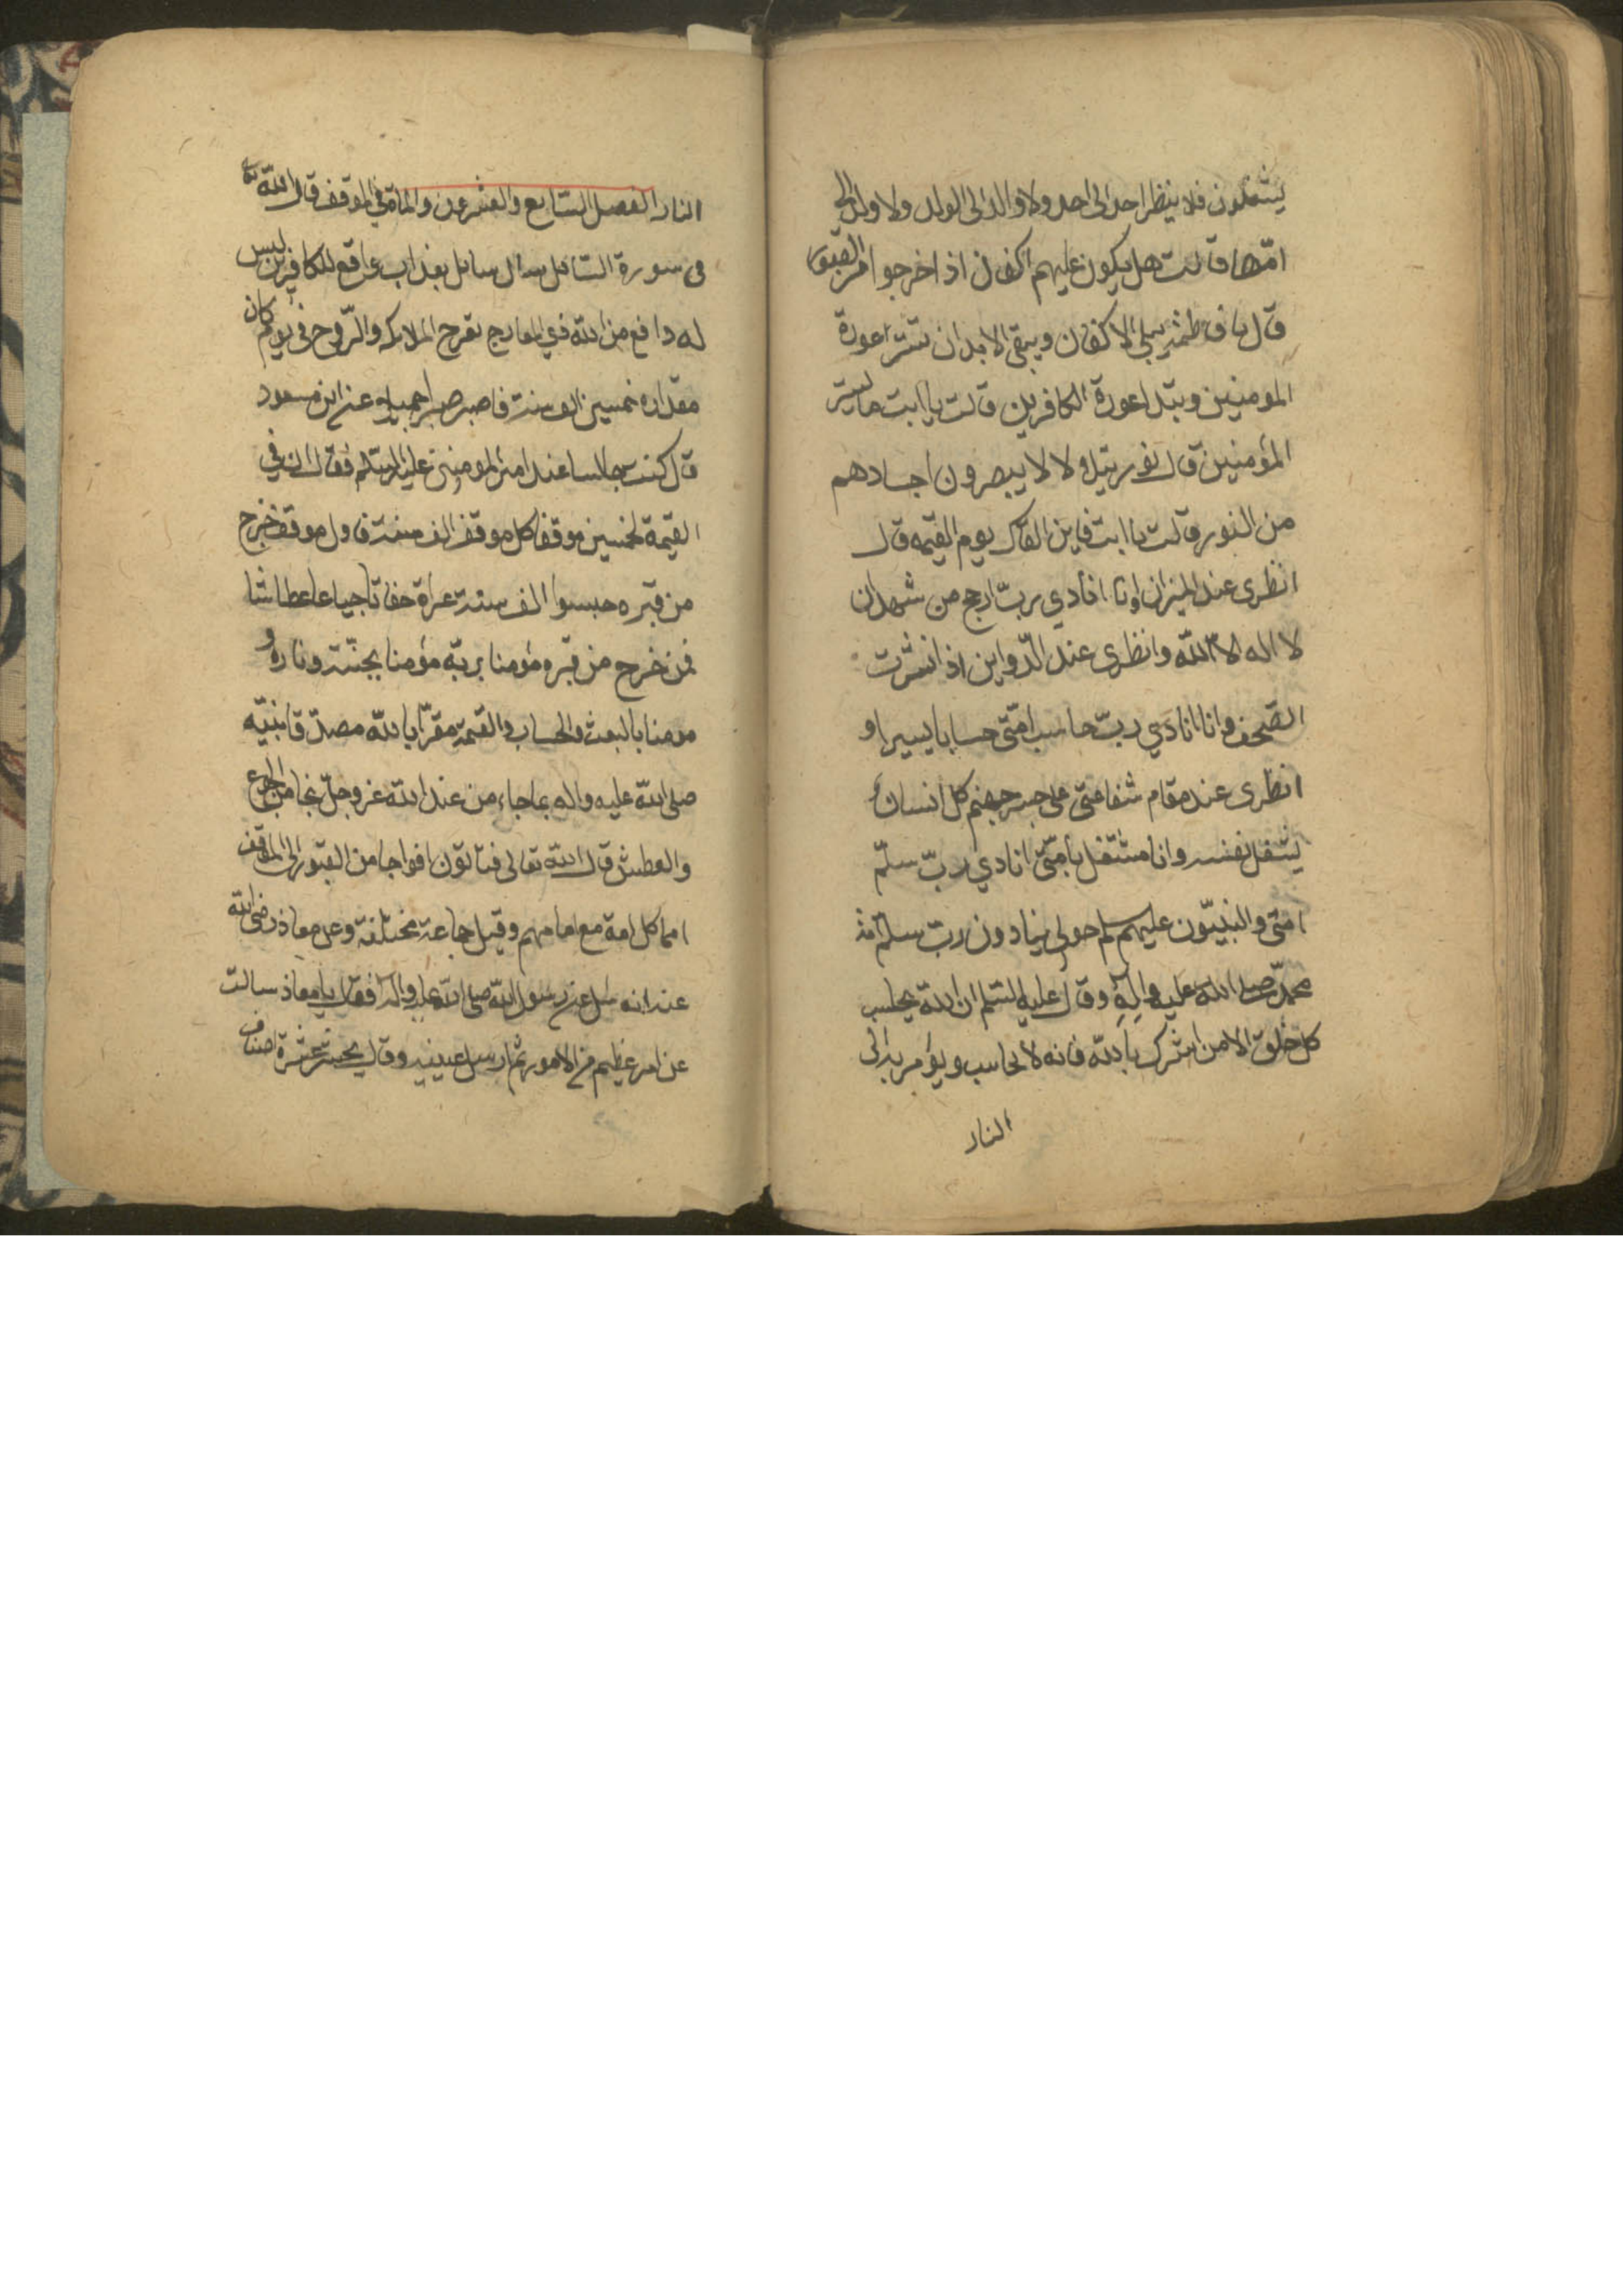 يشغلون فلا ينظر احد الى احد ولا والد الى الولد ولا ولد الى
امّها قالت هل يكون عليهم اكفان اذا خرجوا من القبور
قال يا فاطمة يبلى الاكفان ويبقى الابدان تستر عورة
المومنين ويبدا عورة الكافرين قالت يا ابت ما يستر
المؤمنين قال نور يتلا لا لا يبصرون اجسادهم
من النور قالت يا ابت فاين القاك يوم القيمه قال
انظرى عند الميزان وانا انادي ربّ ارجح من شهد ان
لا اله الا الله وانظرى عند الدّواوين اذا نشرت
الصّحف وانا انادي ربّ حاسب امّتى حسابا يسيرا و
انظرى عند مقام شفاعتى على جسر جهنم كل انسان
يشغل بنفسه وانا مشتغل بأمّتى انادي ربّ سلّم
امتى والنبيّون عليهم سلم حولى ينادون رب سلّم امة
محمدّ صلى الله عليه واله وقال عليه السّلم ان الله يحاسب
كل خلق الا من اشرك بالله فانه لا يحاسب ويؤمر به الى
النار
النار الفصل السّابع والعشرون والمائة في الموقف قال الله تع
فى سورة السّائل سال سائل بعذاب واقع للكافرين ليس
له دافع من الله ذي المعارج تعرج الملائكه والرّوح في يوم كان
مقداره خمسين الف سنة فاصبر صبرا جميلا عن ابن مسعود
قال كنت جالسا عند امير المومنين عليه السّلم فقال ان في
القيمة لخمسين موقفا كل موقف الف سنة فاول موقف خرج
من قبره حبسوا الف سنة عراة حفاتا جياعا عطاشا
فمن خرج من قبره مؤمنا بربّه مؤمنا بجنّته وناره و
مومنا بالبعث والحساب والقيمة مقرّا بالله مصدّقا بنبيّه
صلى الله عليه واله بما جاء من عند الله عزوجلّ نجا من الجوع
والعطش قال الله تعالى فتاتون افواجا من القبور الى المواقف
امما كل امة مع امامهم وقيل جماعة مختلفة وعن معاذ رضى الله
عنه انه سئل عن رسول الله صلى الله عليه واله فقال يا معاذ سالت
عن امر عظيم من الامور ثم ارسل عينيه وقال يحشر عشرة اصناف